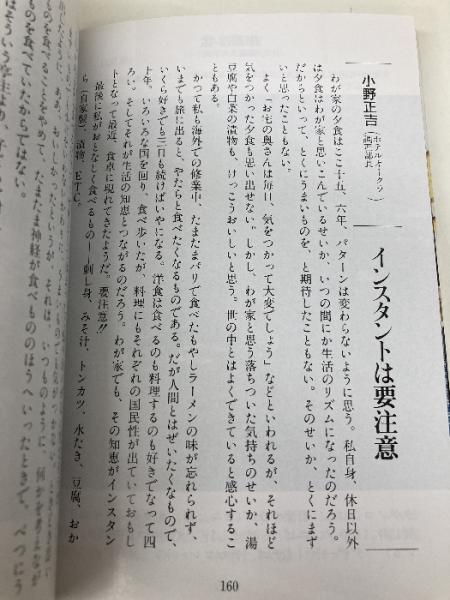 インスタントは要注意
小野正吉(ホテルオークラ調理部長)
わが家の夕食はここ十五、六年、パターンは変わらないように思う。私自身、休日以外
は夕食はわが家と思いこんでいるせいか、いつの間にか生活のリズムになったのだろう。
だからといって、とくにうまいものを、と期待したこともない。そのせいか、とくにまず
いと思ったこともない。
よく「お宅の奥さんは毎日、気をつかって大変でしょう」などといわれるが、それほど
気をつかった夕食も思い出せない。しかし、わが家と思う落ちついた気持ちのせいか、湯
豆腐や白菜の漬物も、けっこうおいしいと思う。世の中とはよくできていると感心するこ
ともある。
かつて私も海外での修業中、たまたまパリで食べたもやしラーメンの味が忘れられず、
いまでも旅に出ると、やたらと食べたくなるものである。だが人間とはぜいたくなもので、
いくら好きでも三日も続けばいやになる。洋食は食べるのも料理するのも好きでなって四
十年。いろいろな国を回り、食べ歩いたが、料理にもそれぞれの国民性が出ていておもし
ろい。そしてそれが生活の知恵とつながるのだろう。わが家でも、その知恵がインスタン
トとなって最近、食卓に現れてきたようだ。要注意!!
最後に私がおとなしく食べるもの――刺し身、みそ汁、トンカツ、水たき、豆腐、おか
ら(自家製)、漬物、ETC。
160
ものを食べていたからではない。